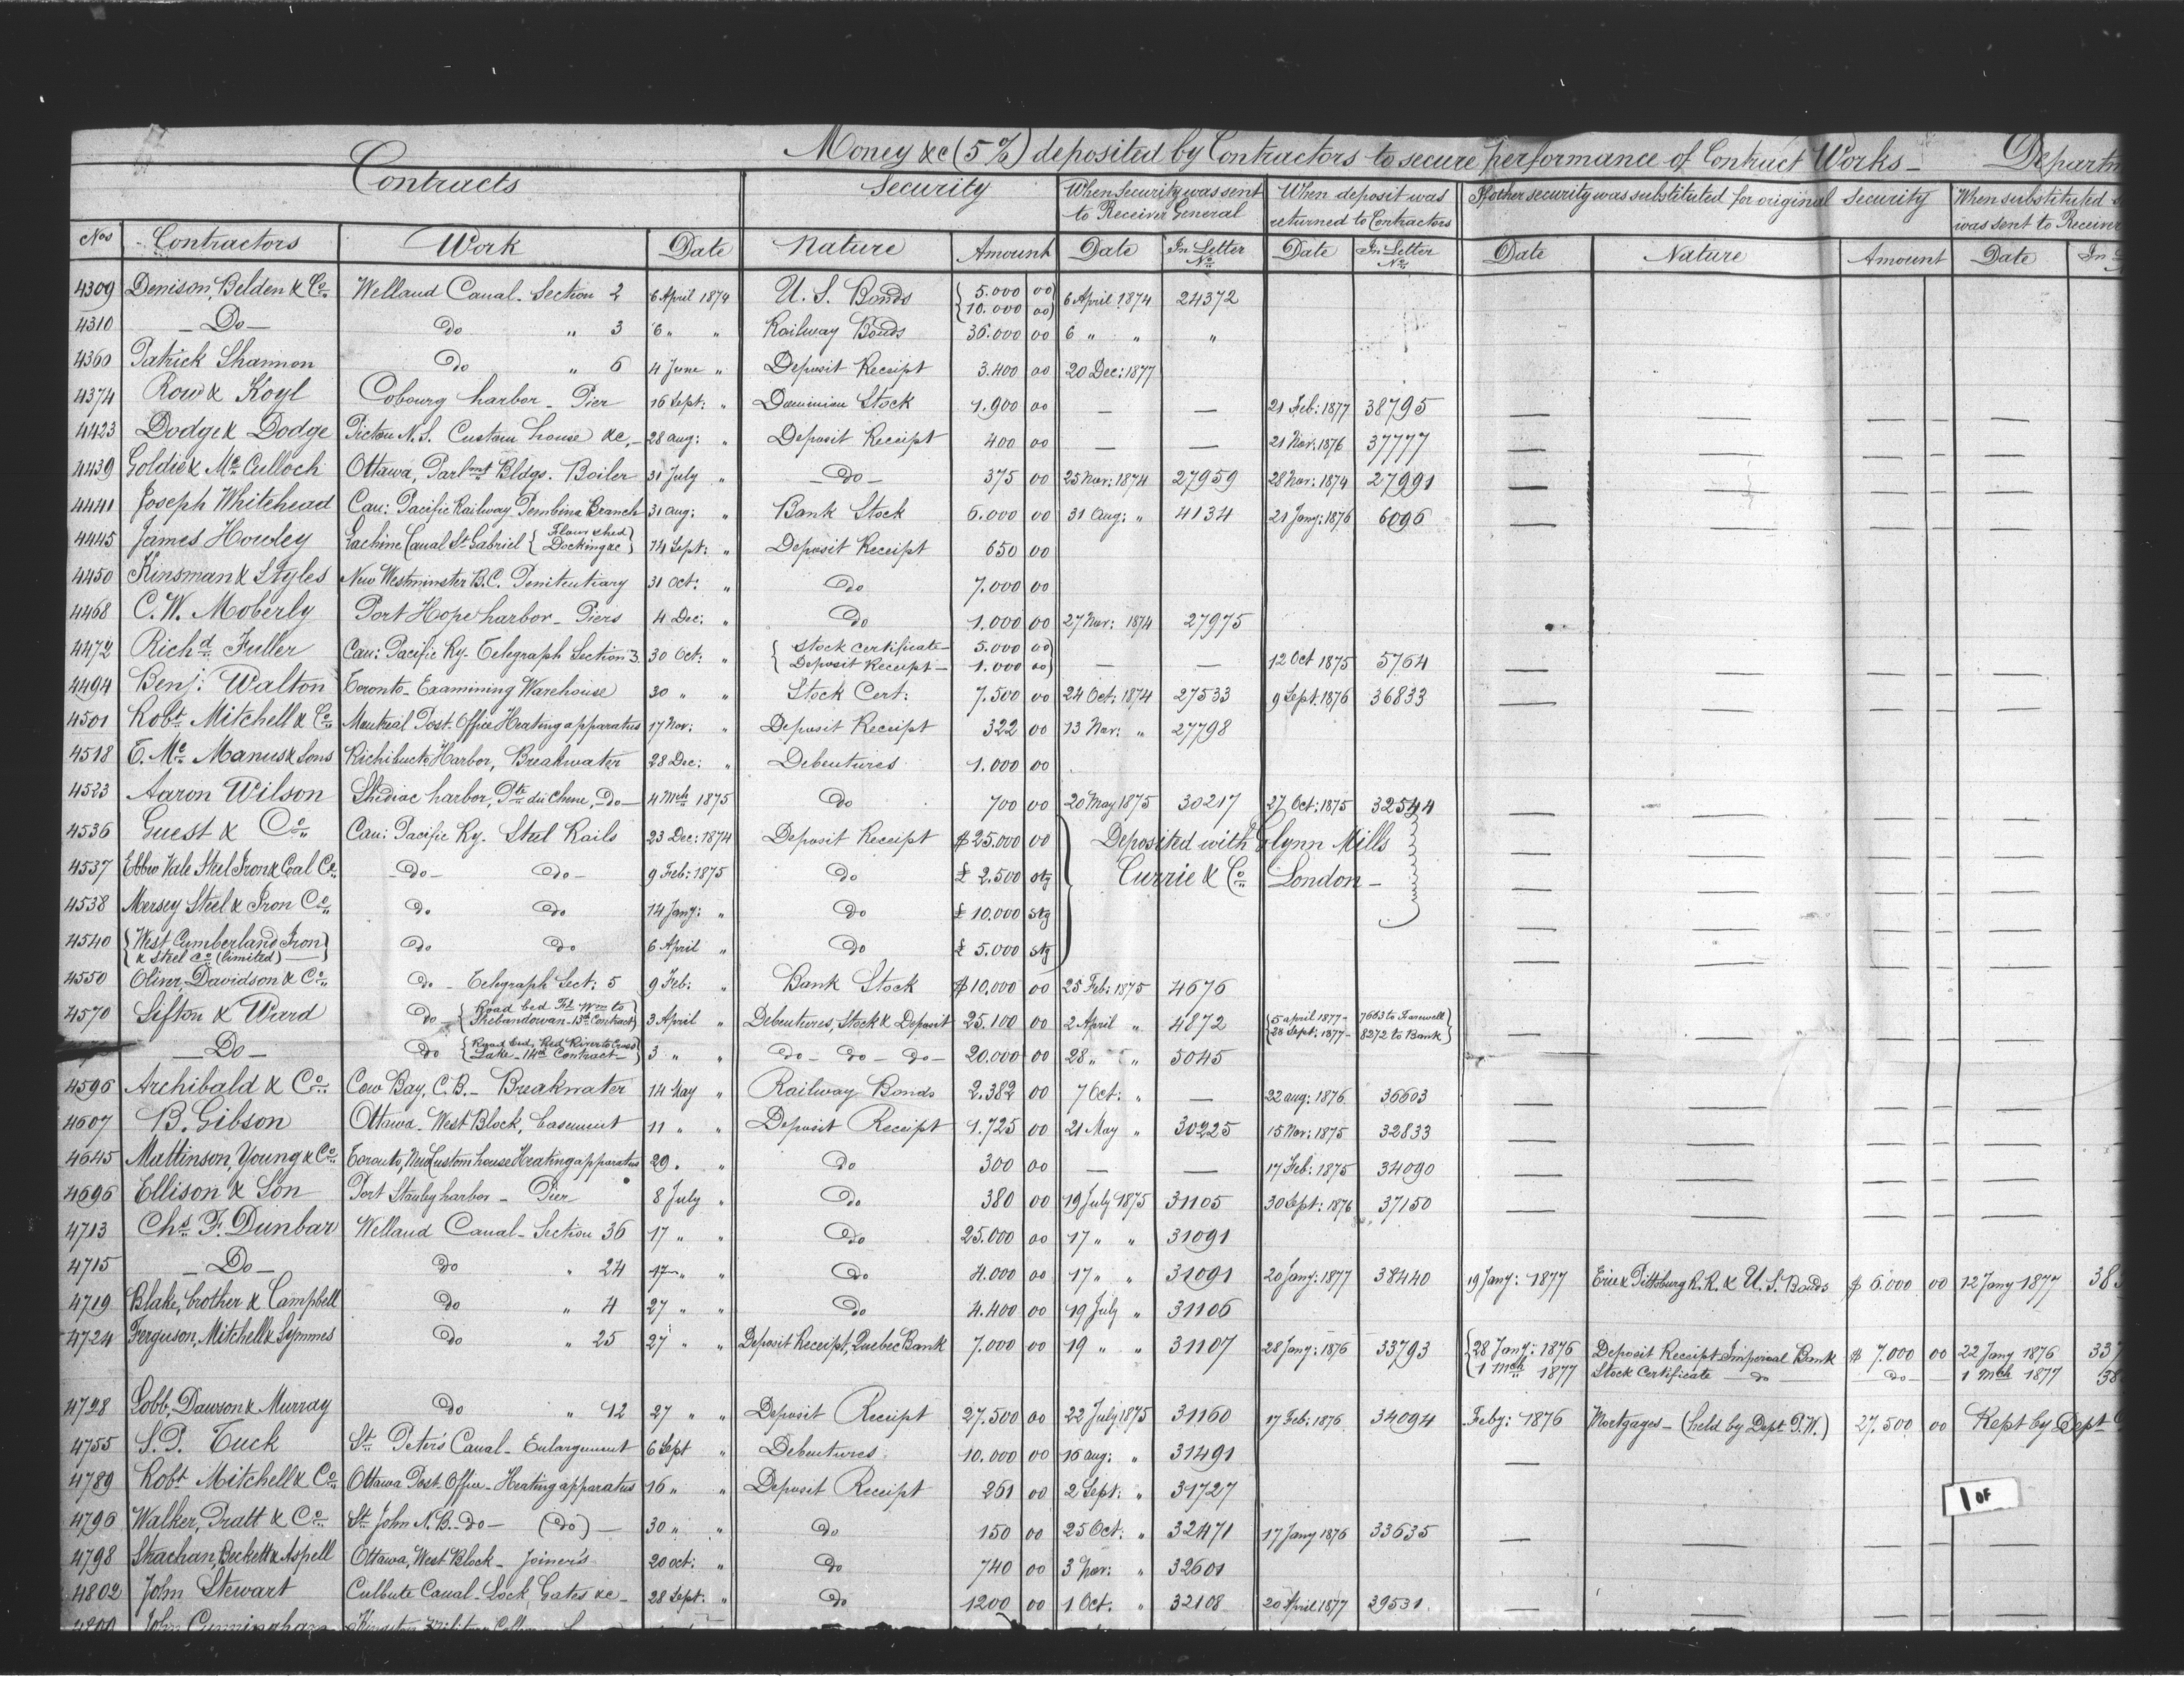 Money &c (5%) deposited by Contractors to secure performance of Contract Works — Departm
Contracts Security When Security was sent to Receiver General When deposit was returned to Contractors If other security was substituted for original Security When substituted was sent to Receiver
Nos Contractors Work Date Nature Amount Date In Letter No. Date In Letter No. Date Nature Amount Date In
4309 Denison, Belden & Co. Welland Canal - Section 2 6 April 1874 U. S. Bonds { 5.000 00 10.000 00 } 6 April 1874 24372
4310 — Do — do " 3 6 " " Railway Bonds 36.000 00 6 " " "
4360 Patrick Shannon Do " 6 4 June " Deposit Receipt 3.400 00 20 Dec: 1877
4374 Row & Koyl Cobourg harbor - Pier 16 Sept: " Dominion Stock 1.900 00 — — 21 Feb: 1877 38795 — — — —
4423 Dodge & Dodge Pictou N.S. Custom house &c. — 28 Aug: " Deposit Receipt 400 00 — — 21 Nov: 1876 37777 — — — —
4439 Goldie & McCulloch Ottawa, Parlmt Bldgs. Boiler 31 July " — Do — 375 00 25 Nov: 1874 27959 28 Nov: 1874 27991 — — — —
4441 Joseph Whitehead Can: Pacific Railway Pembina Branch 31 Aug: " Bank Stock 6.000 00 31 Aug: " 4134 21 Jany: 1876 6096 — — — —
4445 James Howley Lachine Canal St. Gabriel { Flour shed Docking &c } 14 Sept: " Deposit Receipt 650 00
4450 Kinsman & Styles New Westminster B.C. Penitentiary 31 Oct: " Do 7.000 00
4468 C. W. Moberly Port Hope harbor - Piers 4 Dec: " Do 1.000 00 27 Nov: 1874 27975
4472 Richd. Fuller Can: Pacific Ry. Telegraph Section 3. 30 Oct: " { Stock certificate — 5.000 00 Deposit Receipt — 1.000 00 } — — 12 Oct 1875 5764 — — — —
4494 Benj: Walton Toronto - Examining Warehouse 30 " " Stock Cert: 7.500 00 24 Oct: 1874 27533 9 Sept: 1876 36833 — — — —
4501 Robt. Mitchell & Co. Montreal Post-Office Heating apparatus 17 Nov: " Deposit Receipt 322 00 13 Nov: " 27798
4518 E. McManus & Sons Richibucto Harbor, Breakwater 28 Dec: " Debentures 1.000 00
4523 Aaron Wilson Shediac harbor, Pte du Chene, — Do — 4 Mch 1875 Do 700 00 20 May 1875 30217 27 Oct: 1875 32544 — — — —
4536 Guest & Co. Can: Pacific Ry. Steel Rails 23 Dec: 1874 Deposit Receipt $ 25.000 00 } Deposited with Glynn Mills — — — —
4537 Ebbw Vale Steel Iron & Coal Co. — Do — — Do — 9 Feb: 1875 Do £ 2.500 stg Currie & Co. London — — — — —
4538 Mersey Steel & Iron Co. Do Do 14 Jany: " Do £ 10.000 stg — — — —
4540 { West Cumberland Iron & Steel Co. (limited) — } Do Do 6 April " Do £ 5.000 stg — — — —
4550 Oliver, Davidson & Co. Do - Telegraph Sect: 5 9 Feb: " Bank Stock $ 10.000 00 25 Feb: 1875 4676
4570 Sifton & Ward Do — { Road bed Ft. Wm to Shebandowan - 13th Contract } 3 April " Debentures, Stock & Deposit 25.100 00 2 April " 4872 { 5 April 1877 - 7663 to Farwell 28 Sept: 1877 - 8272 to Bank } — — — —
— Do — Do { Road bed, Red River to Cross Lake - 14th Contract — } 3 " " — do — do — do — 20.000 00 28 " " 5045
4596 Archibald & Co. Cow Bay, C.B. - Breakwater 14 May " Railway Bonds 2.382 00 7 Oct: " — 22 Aug: 1876 36603 — — — —
4607 B. Gibson Ottawa - West Block, basement 11 " " Deposit Receipt 1.725 00 21 May " 30225 15 Nov: 1875 32833 — — — —
4645 Mattinson, Young & Co. Toronto, New Custom house Heating apparatus 29. " Do 300 00 — — 17 Feb: 1875 34090 — — — —
4696 Ellison & Son Port Stanley harbor - Pier 8 July " Do 380 00 19 July 1875 31105 30 Sept: 1876 37150 — — — —
4713 Chs. F. Dunbar Welland Canal - Section 36 17 " " Do 25.000 00 17 " " 31091
4715 — Do — Do " 24 17 " " Do 4.000 00 17 " " 31091 20 Jany: 1877 38440 19 Jany: 1877 Erie & Pittsburg R.R. & U. S. Bonds $ 6.000 00 12 Jany 1877 38
4719 Blake, brother & Campbell Do " 4 27 " " Do 4.400 00 19 July " 31106
4724 Ferguson, Mitchell & Symmes Do " 25 27 " " Deposit Receipt, Quebec Bank 7.000 00 19 " " 31107 28 Jany: 1876 33793 { 28 Jany: 1876 Deposit Receipt Imperial Bank $ 7.000 00 22 Jany 1876 337
1 Mch 1877 Stock Certificate — do — — do — 1 Mch 1877 38
4728 Lobb, Dawson & Murray Do " 12 27 " " Deposit Receipt 27.500 00 22 July 1875 31160 17 Feb: 1876 34094 Feby: 1876 Mortgages — (held by Dept. P.W.) 27.500 00 Kept by Dept
4755 S. P. Tuck St. Peter's Canal - Enlargement 6 Sept " Debentures 10.000 00 16 Aug: " 31491 —
4789 Robt. Mitchell & Co. Ottawa Post Office - Heating apparatus 16 " " Deposit Receipt 261 00 2 Sept: " 31727
1 OF
4796 Walker, Pratt & Co. St. John N.B. - do — (do) — 30 " " Do 150 00 25 Oct: " 32471 17 Jany 1876 33635 — — — —
4798 Strachan, Beckett & Aspell Ottawa, West Block - Joiner's 20 Oct: " Do 740 00 3 Nov: " 32601
4802 John Stewart Culbute Canal - Lock, Gates &c — 28 Sept: " Do 1200 00 1 Oct. " 32108 20 April 1877 39531 — — — —
John Cunningham